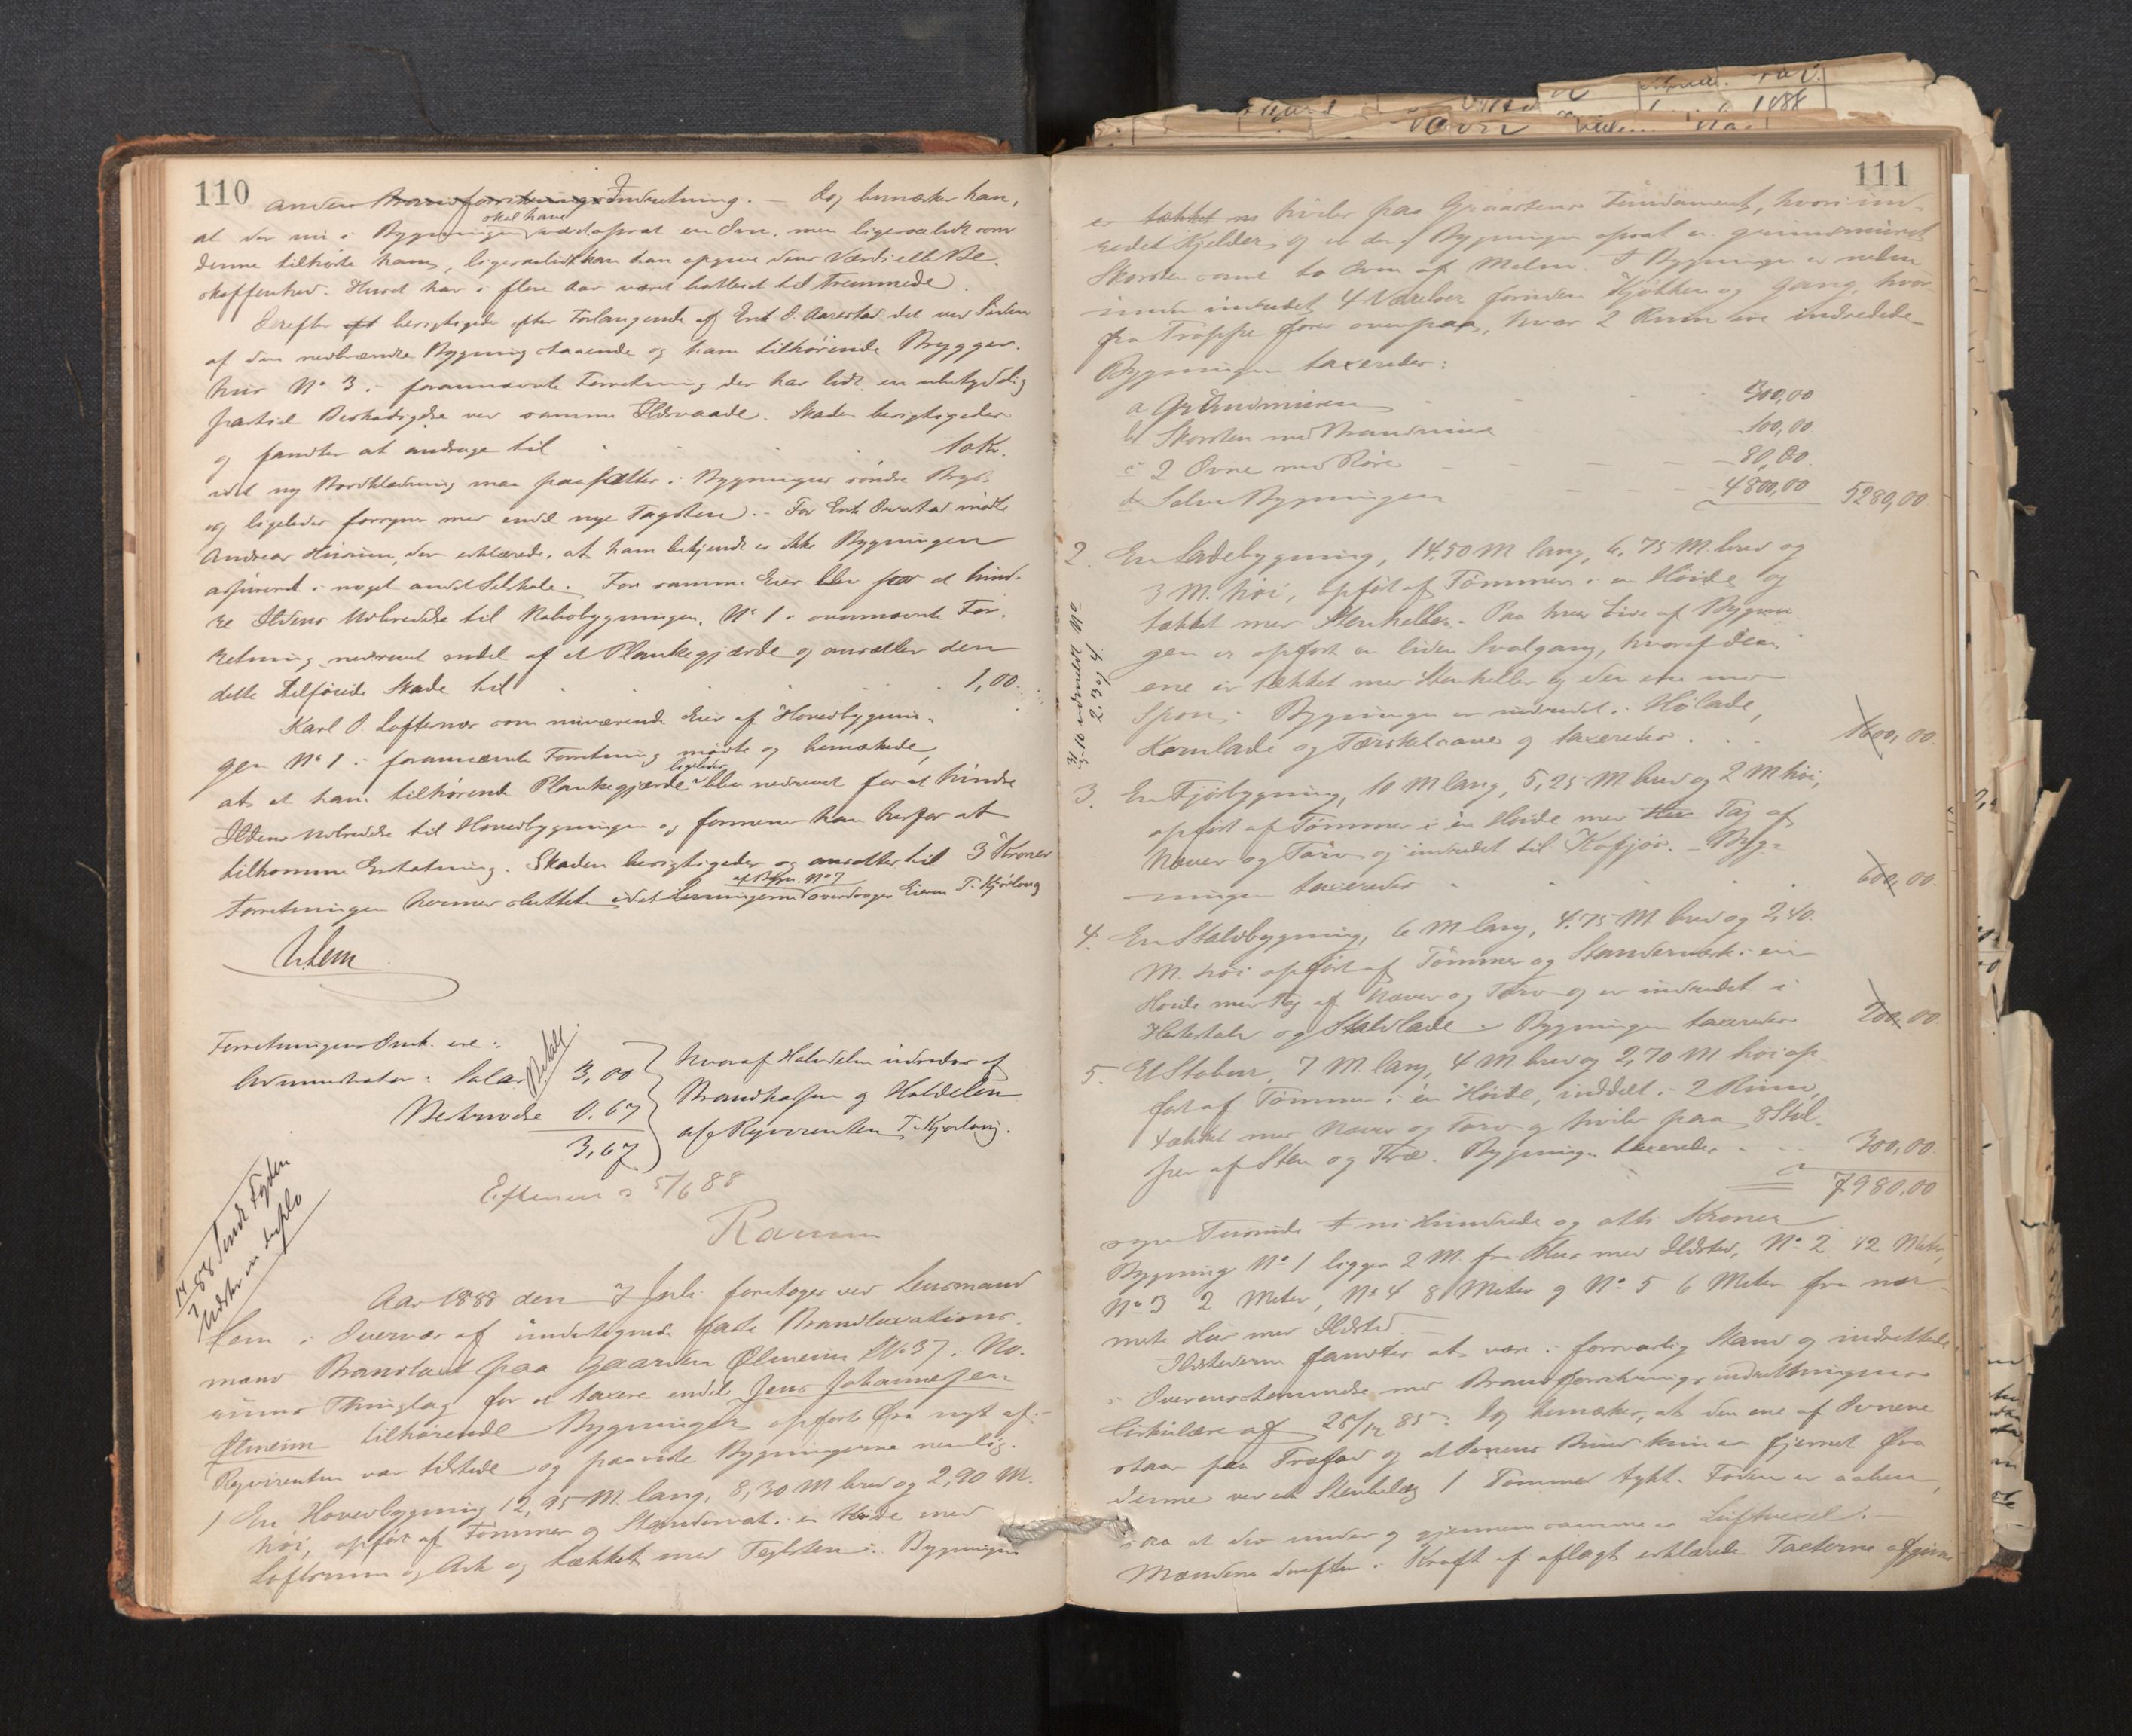 110
anden Brandforsikrings Indretning. — Og bemærker han,
at der nu i Bygningen skal have været opsat en Ovn, men ligesaalidt som
denne tilhørte ham, ligesaalidt kan han opgive dens Værdi eller Be-
skaffenhed. Huset har i flere Aar været bortleiet til Fremmede.
Derefter besigtigedes efter Forlangende af Erik O. Aarestad det ved Siden
af den nedbrændte Bygning staaende og ham tilhørende Brygger-
hus No 3 i forannævnte Forretning der har lidt en ubetydelig
partiel Beskadigelse ved samme Ildsvaade. Skaden besigtigedes
og fandtes at andrage til 10 Kr.
idet ny Bordklædning maa paasættes i Bygningens søndre Byg-
og ligeledes fornyes med endel nye Tagsten. — For Erik mødte
Andreas der erklærede, at ham bekjendt er ikke Bygningen
assureret i noget andet Selskab. For samme Eier blev for at hind-
re Ildens Udbredelse til Nabobygningen, No 1 i ovennævnte For-
retning nedrevet endel af et Plankegjærde og ansattes den
dette tilføiede Skade til 1,00.
Karl O. Loftesnes som nuværende Eier af Hovedbygnin-
gen No 1 i forannævnte Forretning mødte og bemærkede,
at et ham tilhørende Plankegjærde ligeledes blev nedrevet for at hindre
Ildens Udbredelse til Hovedbygningen og formener han herfor at
tilkomme Erstatning. Skaden besigtigedes og ansattes til 3 Kroner
Forretningen hermed sluttet idet Levningerne af Bygn. No 7 overdrages Eieren T. Kjørlaug
Lem
Forretningens Omk. ere:
Administrator: Salær 3,00
Betalt
0.67
3,67
hvoraf Halvdelen udredes af
Brandkassen og Haldelen
af Reqvirenten T. Kjørlaug.
Efterseet 5/6 88
14/7 88 Sendt
Udskr in duplo
Aar 1888 den 7 Juli foretoges ved Lensmand
Lem i Overvær af undertegnede faste Brandtaxations-
mænd Brandtaxt paa Gaarden Ølmeim No 37 i No-
rums Thinglag for at taxere endel Jens Johannesen
Ølmeim tilhørende Bygninger opført fra nyt af:
Reqvirenten var tilstede og paaviste Bygningerne nemlig:
1 En Hovedbygning 12,95 M. lang, 8,30 M bred og 2,90 M.
høi, opført af Tømmer og Standerværk i en Høide med
Loftsrum og Ark og tækket med Teglsten. Bygningen
111
er tækket m hviler paa Graastens Fundament, hvori ind-
redet Kjelder, og er der i Bygningen opsat en grundmuret
Skorsten samt to Ovne af Malm. I Bygningen er neden-
under indredet 4 Værelser foruden Kjøkken og Gang, hvor-
fra Trappe fører ovenpaa, hvor 2 Rum ere indredede.
Bygningen taxeredes:
a Grundmuren 300,00
b Skorsten med Brandmure 100,00
c 2 Ovne med Rør 80,00
d Selve Bygningen 4800,00 5280,00
2. En Ladebygning, 14,50 M lang, 6,75 M. bred og
3 M. høi, opført af Tømmer i en Høide og
tækket med Stenheller. Paa hver Side af Bygnin-
gen er opført en liden Svalgang, hvoraf den
ene er tækket med Stenheller og den ene med
Spon. Bygningen er indredet i Hølade,
Kornlade og Tærskelaave og taxeredes 1600,00
udmeldt No
2. 3 og 4
3. En Fjøsbygning, 10 M lang, 5,25 M bred og 2 M høi,
opført af Tømmer i èn Høide med Tag af
Næver og Torv og indredet til Kofjøs. Byg-
ningen taxeredes 600,00
4. En Staldbygning, 6 M lang, 4,75 M bred og 2,40
M. høi opført af Tømmer og Standerværk i en
Høide med Tag af Næver og Torv og er indredet i
Hestestald og Staldlade. Bygningen taxeredes 200,00
5. Et Stabur, 7 M. lang, 4 M. bred og 2,70 M høi op-
ført af Tømmer i èn Høide, inddelt i 2 Rum,
tækket med Næver og Torv og hviler paa 8 Stol-
per af Sten og Træ. Bygningen taxeredes 300,00
7980,00
syv Tusinde ni Hundrede og otti Kroner
Bygning No 1 ligger 2 M. fra Hus med Ildsted, No 2 12 Meter,
No 3 2 Meter, No 4 8 Meter og No 5 6 Meter fra nær-
meste Hus med Ildsted.
Ildstederne fandtes at være i forsvarlig Stand og indrettede
i Overensstemmelse med Brandforsikringsindretningens
Cirkulære af 28/12 85. Og bemærkes, at den ene af Ovnene
staar paa Træfod og at Ovnens Bund kun er fjernet fra
denne ved et Stenhelle 1 Tomme tykt. Foden er aaben,
saa at der under og gjennem samme er Luftvexel.
Mændene derefter i Kraft af aflagt erklærede Taxterne afgivne